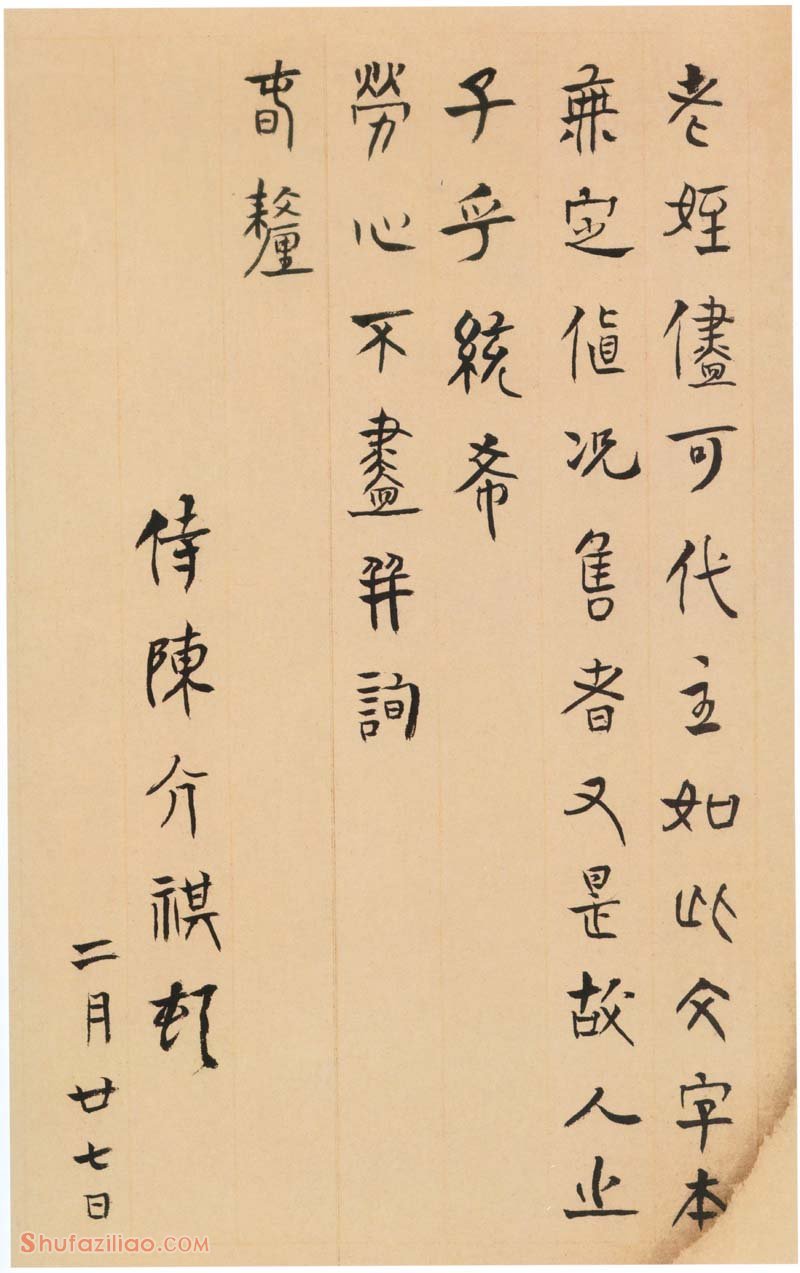 老姪儘可代主如此文字本
無定值况售者又是故人之
子乎統希
勞心不盡并詢
春釐
侍陳介祺頓
二月廿七日
Shufaziliao.COM